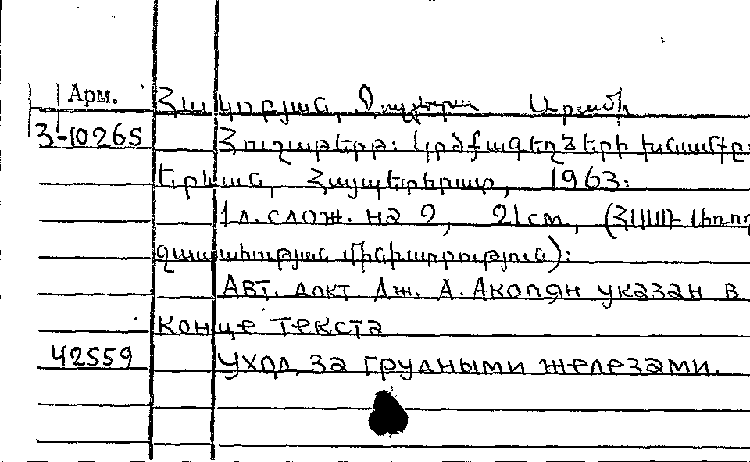 Арм. Հակոբյան, Ջուլիետա Արամի
Յ-10265 Հուշաթերթ: Կրծքագեղձերի խնամքը:
Երևան, Հայպետհրատ, 1963:
1 л. слож. на 2, 21 см, (ՀՍՍՌ Առող
ջապահության մինիստրություն):
Авт. докт Дж. А. Акопян указан в
конце текста
42559 Уход за грудными железами.